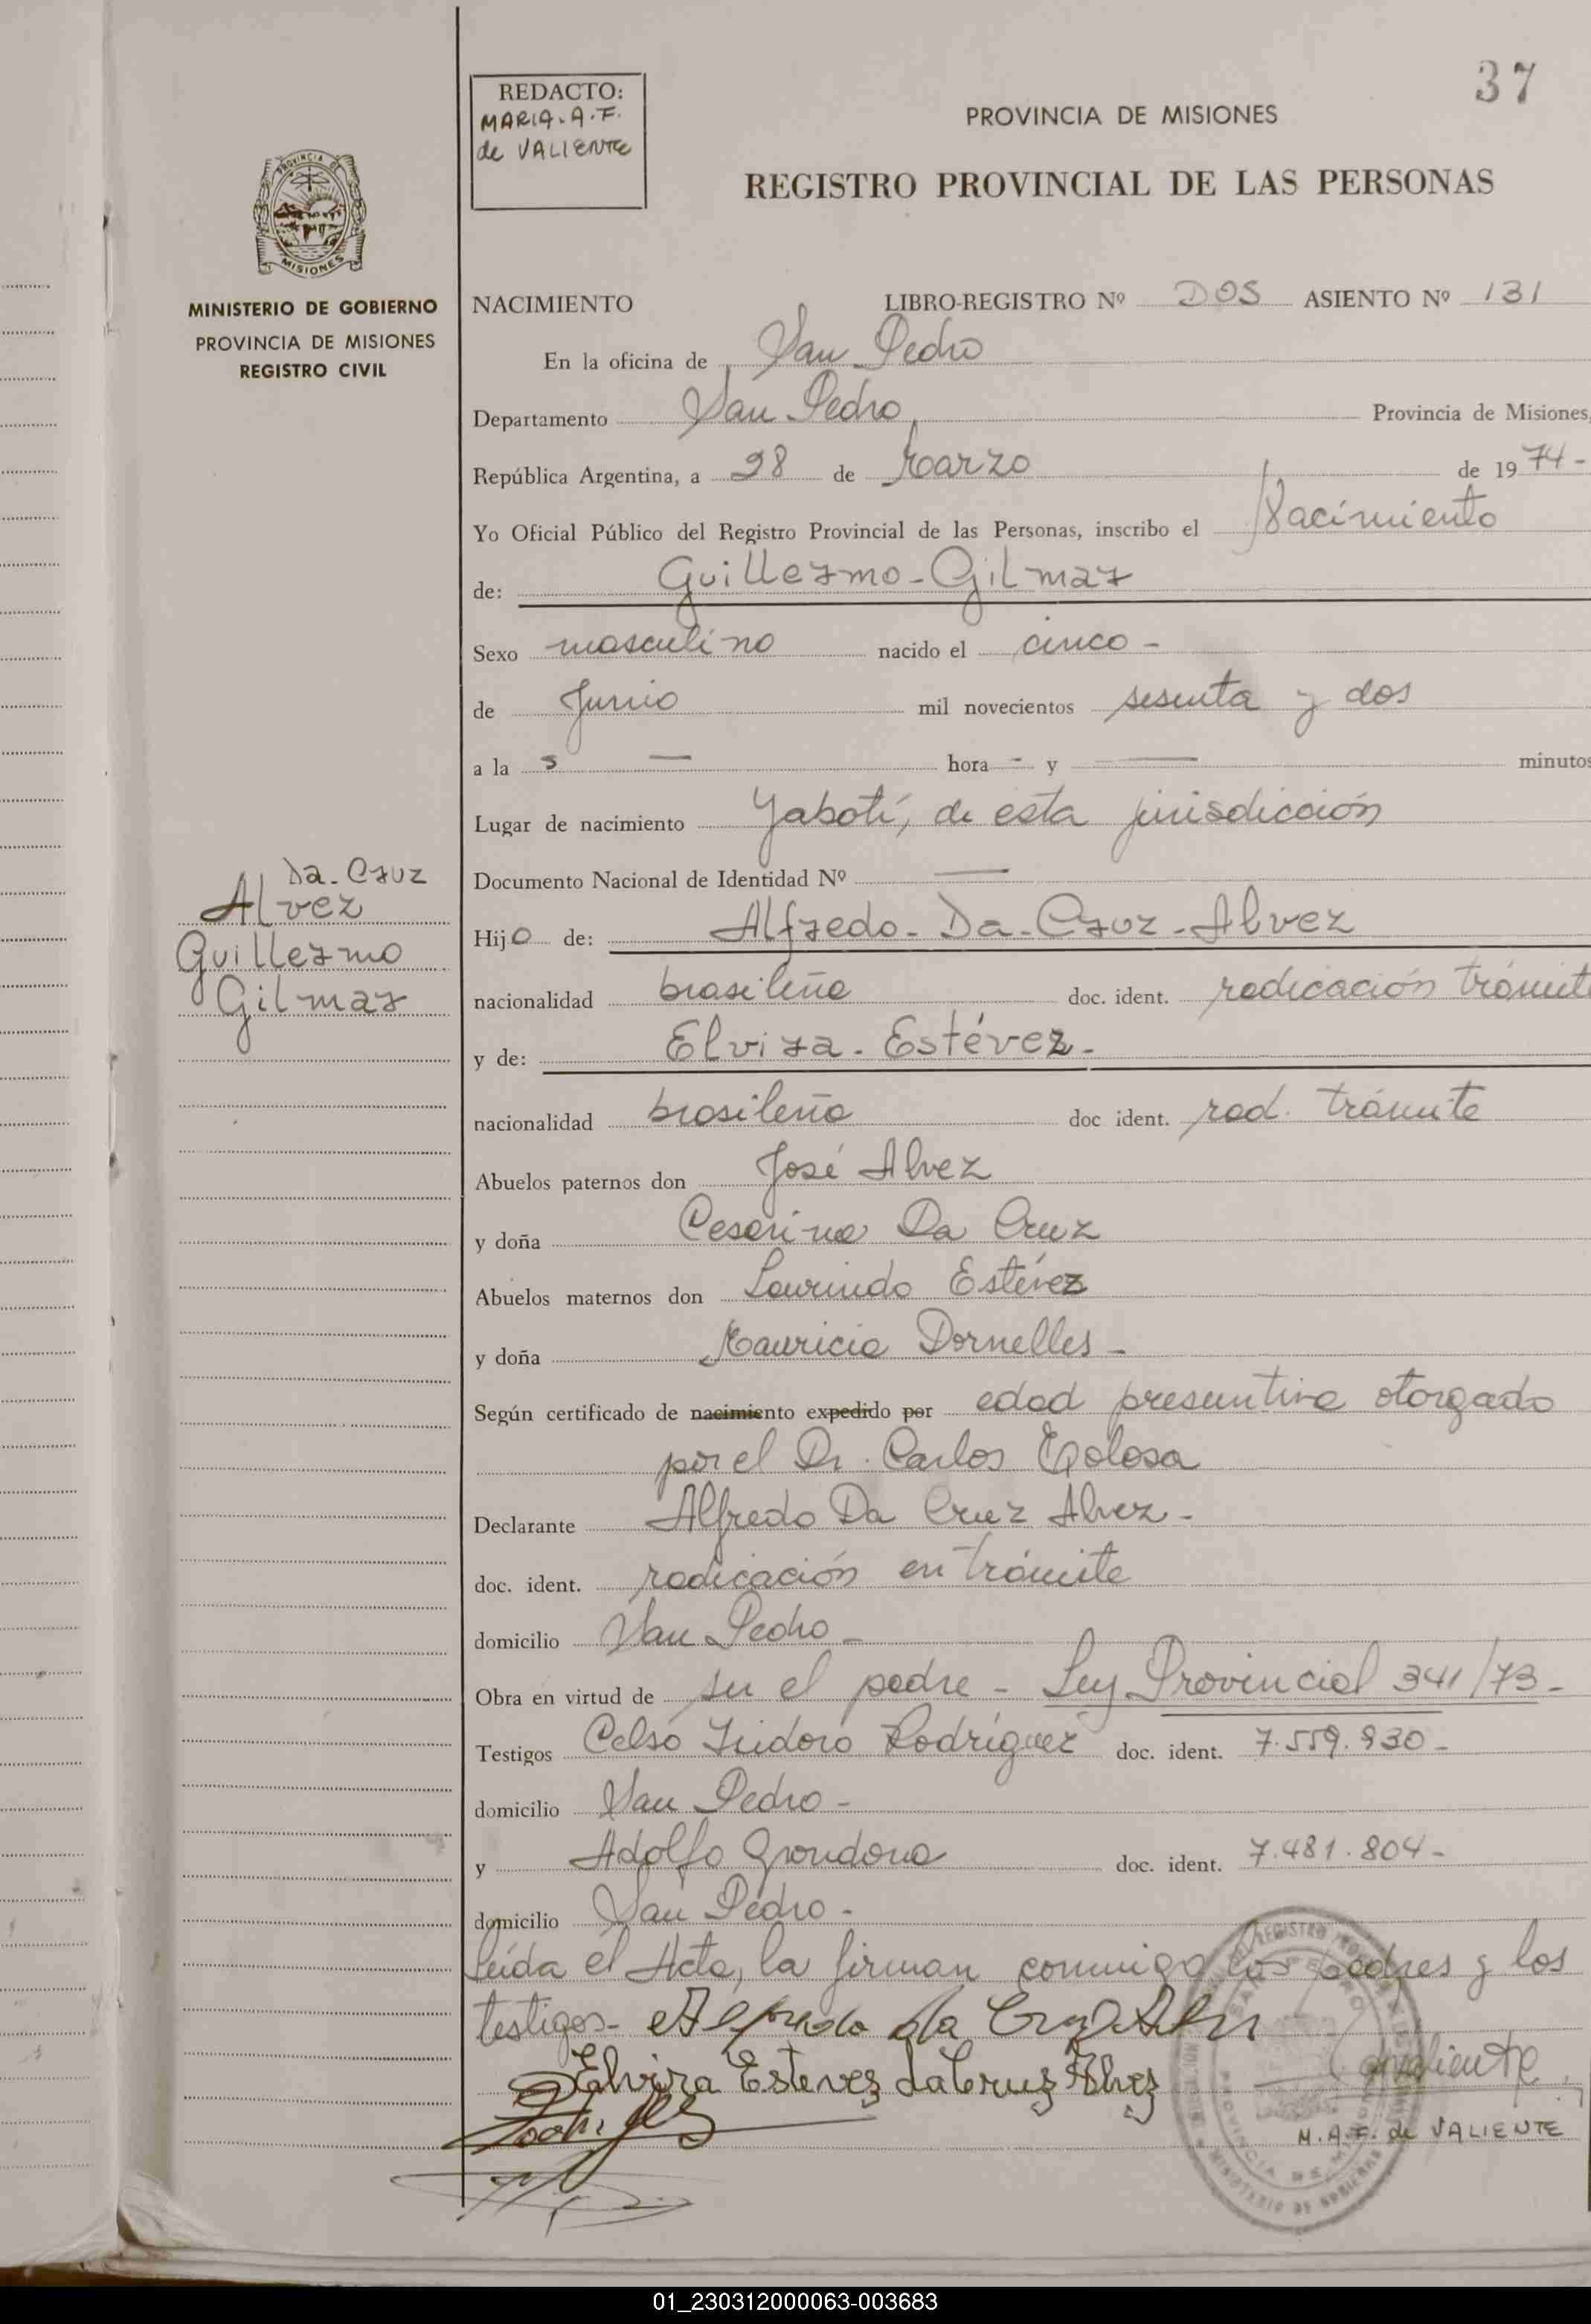 37
REDACTO:
MARIA. A. F.
de VALIENTE
PROVINCIA DE MISIONES
REGISTRO PROVINCIAL DE LAS PERSONAS
PROVINCIA DE
MISIONES
MINISTERIO DE GOBIERNO
PROVINCIA DE MISIONES
REGISTRO CIVIL
NACIMIENTO LIBRO-REGISTRO Nº DOS ASIENTO Nº 131
En la oficina de San Pedro
Departamento San Pedro, Provincia de Misiones,
República Argentina, a 28 de Marzo de 1974-
Yo Oficial Público del Registro Provincial de las Personas, inscribo el Nacimiento
de: Guillermo-Gilmar
Sexo masculino nacido el cinco -
de Junio mil novecientos sesenta y dos
a la s — hora - y — minutos
Lugar de nacimiento Yabotí, de esta jurisdicción
Documento Nacional de Identidad Nº —
Da-Cruz
Alvez
Guillermo
Gilmar
Hijo de: Alfredo-Da-Cruz-Alvez
nacionalidad brasileña doc. ident. radicación trámite
y de: Elvira-Estévez-
nacionalidad brasileña doc ident. rad. trámite
Abuelos paternos don José Alvez
y doña Cesarina Da Cruz
Abuelos maternos don Laurindo Estévez
y doña Mauricia Dornelles -
Según certificado de nacimiento expedido por edad presuntiva otorgado
por el Dr. Carlos
Declarante Alfredo Da Cruz Alvez-
doc. ident. radicación en trámite
domicilio San Pedro-
Obra en virtud de ser el padre - Ley Provincial 341/73-
Testigos Celso Isidoro Rodríguez doc. ident. 7.559.930-
domicilio San Pedro-
y Adolfo Grondona doc. ident. 7.481.804-
domicilio San Pedro-
Leída el Acta, la firman conmigo los padres y los
testigos- Alfredo da Cruz Alvez
Elvira Estevez daCruz Alvez
Valiente
M.A.F. de VALIENTE
01_230312000063-003683